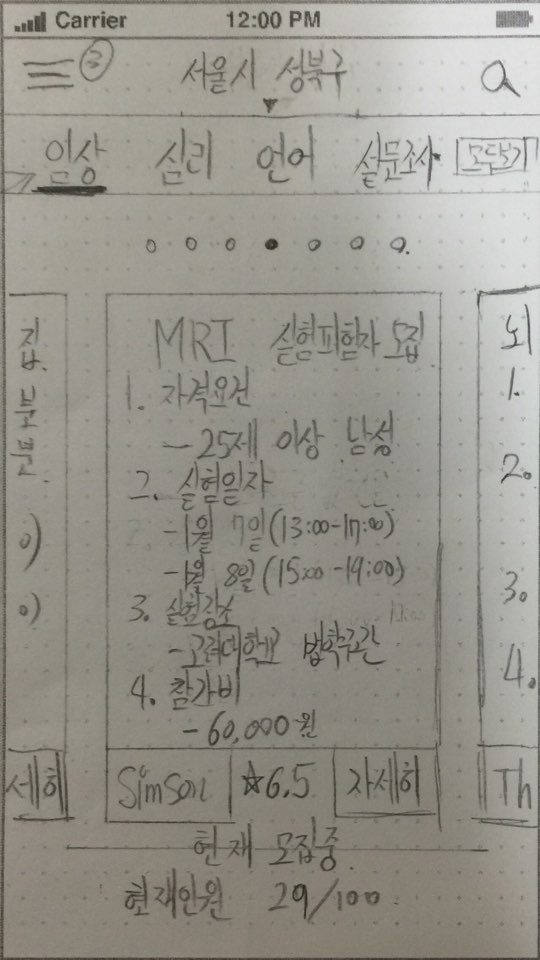 Carrier 12:00 PM
3 서울시 성북구
임상 심리 언어 설문조사 모두보기
MRI 실험피험자 모집
1. 자격요건
- 25세 이상 남성
2. 실험일자
- 1월 7일 (13:00-17:00)
- 1월 8일 (15:00-19:00)
3. 실험장소
- 고려대학교 법학구관
4. 참가비
- 60,000원
Simson ☆6.5 자세히
현재 모집중
현재인원 29/100
집
뇌
1.
2.
3.
4.
세히
Th